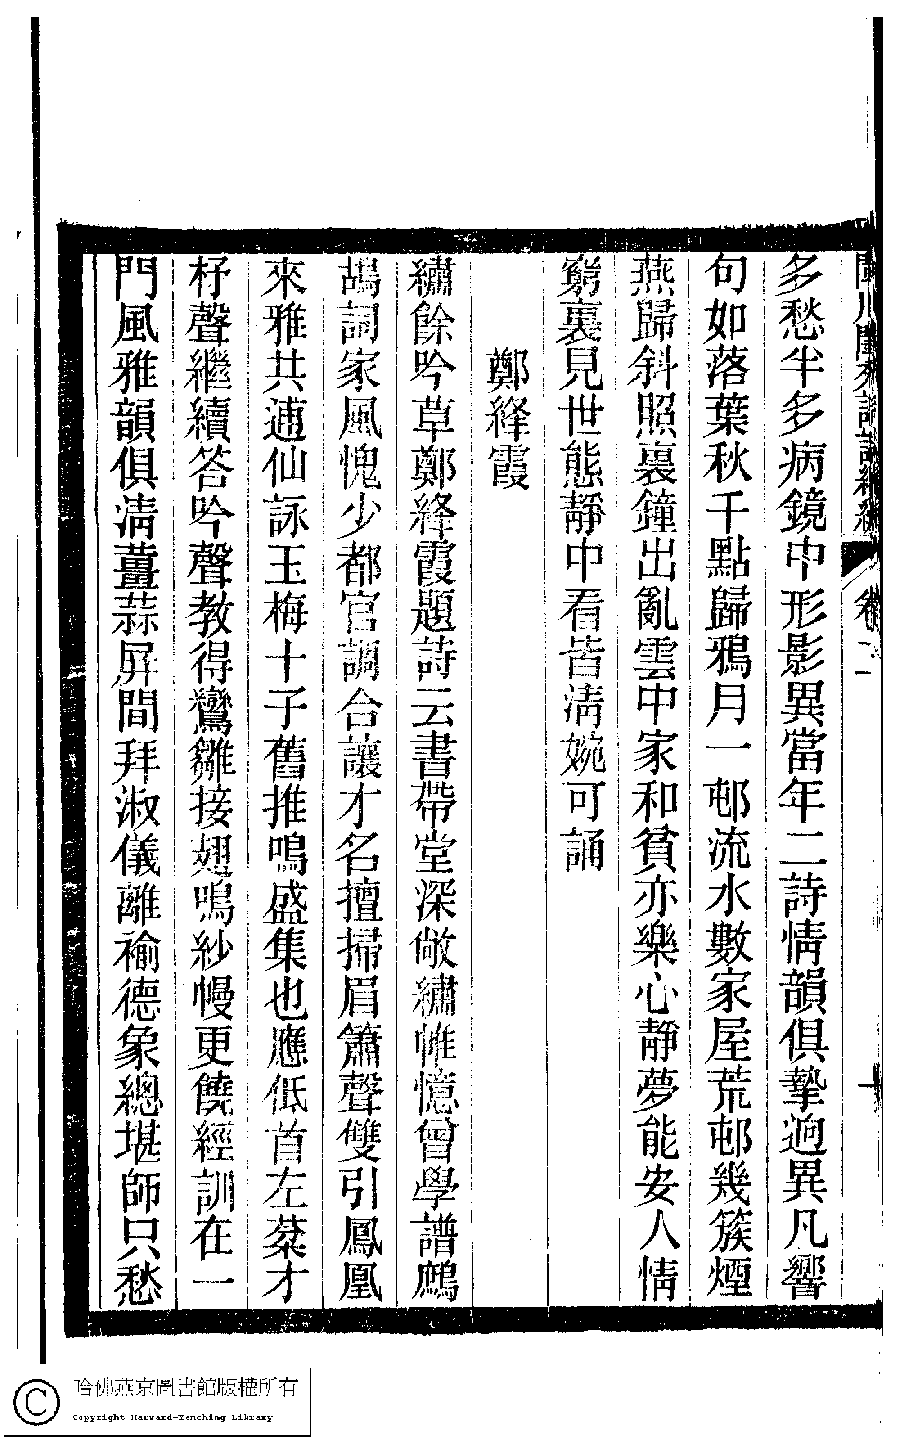 閩川閨秀詩話續編 卷二 十
多愁半多病鏡中形影異當年二詩情韻俱摯逈異凡響
句如落葉秋千點歸鴉月一邨流水數家屋荒邨幾簇煙
燕歸斜照裏鐘出亂雲中家和貧亦樂心靜夢能安人情
窮裏見世態靜中看皆淸婉可誦
鄭絳霞
繡餘吟草鄭絳霞題詩云書帶堂深敞繡帷憶曾學譜鷓
鴣詞家風愧少都官調合讓才名擅掃眉簫聲雙引鳳凰
來雅共逋仙詠玉梅十子舊推鳴盛集也應低首左棻才
杼聲繼續答吟聲教得鸞雛接翅鳴紗幔更饒經訓在一
門風雅韻俱淸薑蒜屏間拜淑儀離褕德象總堪師只愁
哈佛燕京圖書館版權所有
Copyright Harvard-Yenching Library